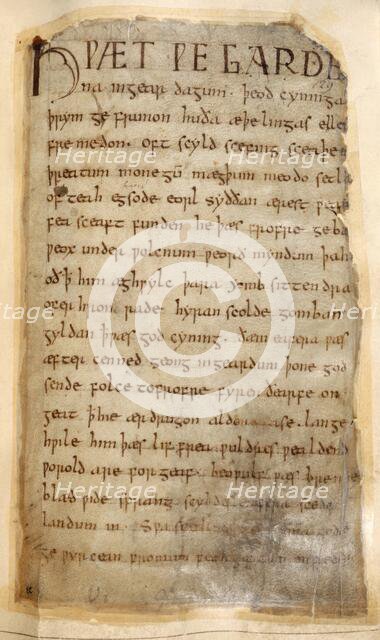 HǷÆT ǷE GARDE
na ingear dagum. þeod cyninga
þrym ge frunon huða æþelingas elle
fremedon. oft scyld scefing sceaþe
þreatum monegū mægþum meodo setla
of teah egsode eorl syððan ærest ƿea
fea sceaft funden he þæs frofre geba
ƿeox under ƿolcnum ƿeorð myndum þah
oð þ him æghƿylc þara ymb sittendra
ofer hron rade hyran scolde gomban
gyldan þ ƿæs god cyning. ðæm eafera ƿæs
æfter cenned geong ingeardum þone god
sende folce tofrofre fyren ðearfe on
geat þ hie ær drugon aldor ase. lange
hƿile him þæs lif frea ƿuldres ƿealdend
ƿorold are forgeaf. beoƿulf ƿæs breme
blæd ƿide sprang scyldes eafera scede
landum in. Sƿa sceal
ge ƿyrcean fromum feoh giftum
Heritage
Images